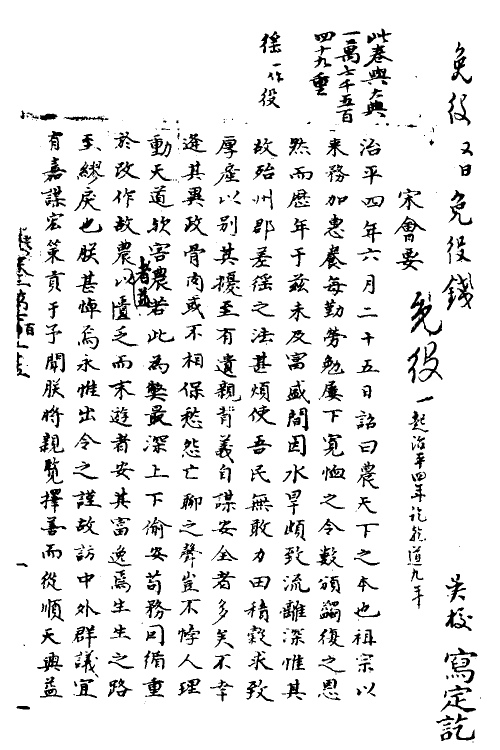 免役 又曰免役錢
吳校 寫定訖
宋會要
免役 一起治平四年訖乾道九年
此卷與大典
一萬七千五百
四十九重
徭一作役
治平四年六月二十五日詔曰農天下之本也祖宗以
來務加惠養每勤勞勉屢下寬恤之令數頒蠲復之恩
然而歷年于茲未及富盛間因水旱頗致流離深惟其
故殆州郡差徭之法甚煩使吾民無敢力田積穀求致
厚產以別其擾至有遺親背義自謀安全者多矣不幸
逢其異政骨肉或不相保愁怨亡聊之聲豈不悖人理
動天道歟害農若此為弊最深上下偷安苟務因循重
者益
於改作故農以匱乏而末遊者安其富逸焉生生之路
至繆戾也朕甚悼焉永惟出令之謹故訪中外群議宜
有嘉謀宏策貢于予聞朕將親覽擇善而從順天興益